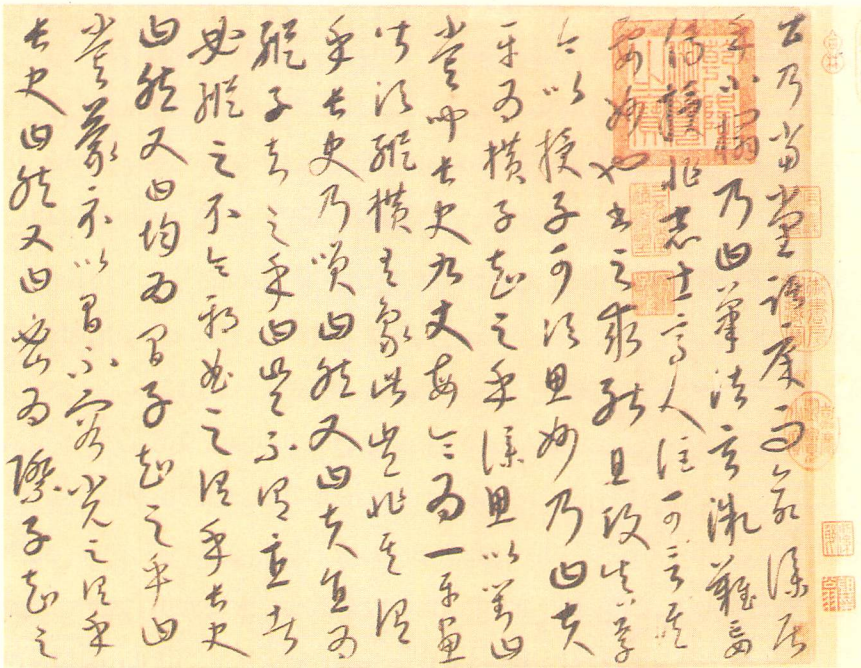 乃當堂踞床而命僕居
乎小榻乃曰筆法玄微難妄
傳授非志士高人詎可言其
要妙也書之求能且攻真草
今以授子可須思妙乃曰夫
平為橫子知之乎僕思以對曰
嘗聞長史九丈每令為一平畫
皆須縱橫有象此豈非其謂
乎長史乃笑曰然又曰夫直為
縱子知之乎曰豈不謂直者
必縱之不令邪曲之謂乎長史
曰然又曰均為間子知之乎曰
嘗蒙示以間不容光之謂乎
長史曰然又曰密為際子知之